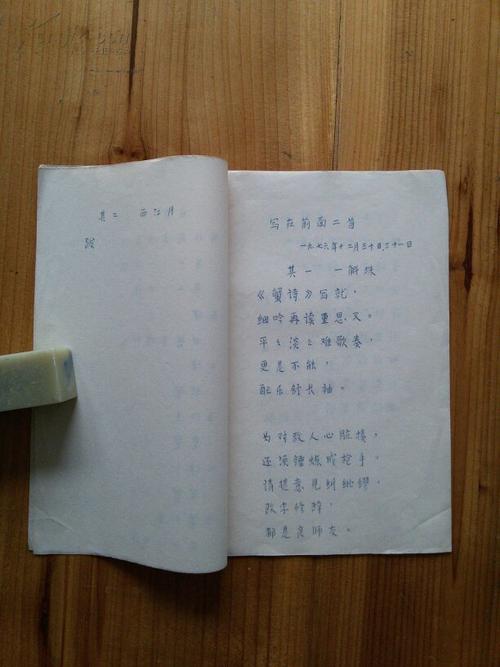 其二 西江月
跋
写在前面二首
一九七六年十二月三十日、三十一日
其一 一斛珠
《蟹诗》写就，
细吟再读重思又。
平平淡淡难歌奏，
更是不能，
配乐舒长袖。
为对敌人心脏揍，
还须锤炼成抢手，
请提意见纠纰缪，
改字修辞，
都是良师友。